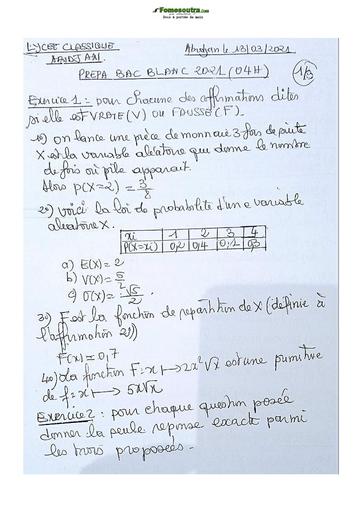 Fomesoutra.com
Docs à portée de main
LYCEE CLASSIQUE
ABIDJAN
Abidjan le 13/03/2021
PREPA BAC BLANC 2021 (04H)
1/3
Exercice 1 : pour chacune des affirmations dites
si elle est VRAIE (V) OU FAUSSE (F).
1°) On lance une pièce de monnaie 3 fois de suite
X est la variable aléatoire qui donne le nombre
de fois où pile apparait.
Alors P(X=2) = 3/8
2°) Voici la loi de probabilité d'une variable
aléatoire X.
xi 1 2 3 4
P(X=xi) 0,2 0,4 0,1 0,3
a) E(X) = 2
b) V(X) = 5/2
c) σ(X) = √5/2.
3°) F est la fonction de repartition de X (définie à
l'affirmation 2°)
F(x) = 0,7
4°) La fonction F: x ↦ 2x²√x est une primitive
de f: x ↦ 5x√x
Exercice 2 : pour chaque question posée
donner la seule reponse exacte parmi
les trois proposées.